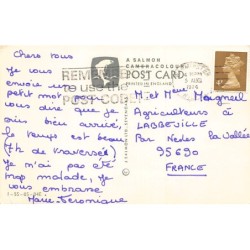 Chers tous
Je vous
envoie une
petit mot pour
vous dire que je
suis bien arrivé,
le temps est beau
(7h de traversée)
Je n'ai pas été
trop malade, je vous
embrasse
Marie-Véronique
REMEMBER
use the
POST CODE
A SALMON
CAMERACOLOUR
POST CARD
PRINTED IN ENGLAND
M. et Mme Maigneil
Agriculteurs à
LABBEVILLE
Par Nesles la Vallée
95690
FRANCE